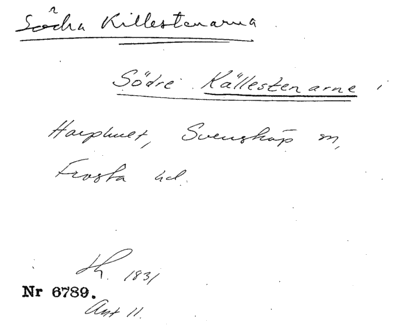 Södra Killestenarna
Södre Källestenarne
Harphult, Svensköp sn,
Frosta hd.
Lh. 1831
Nr 6789.
Akt 11.